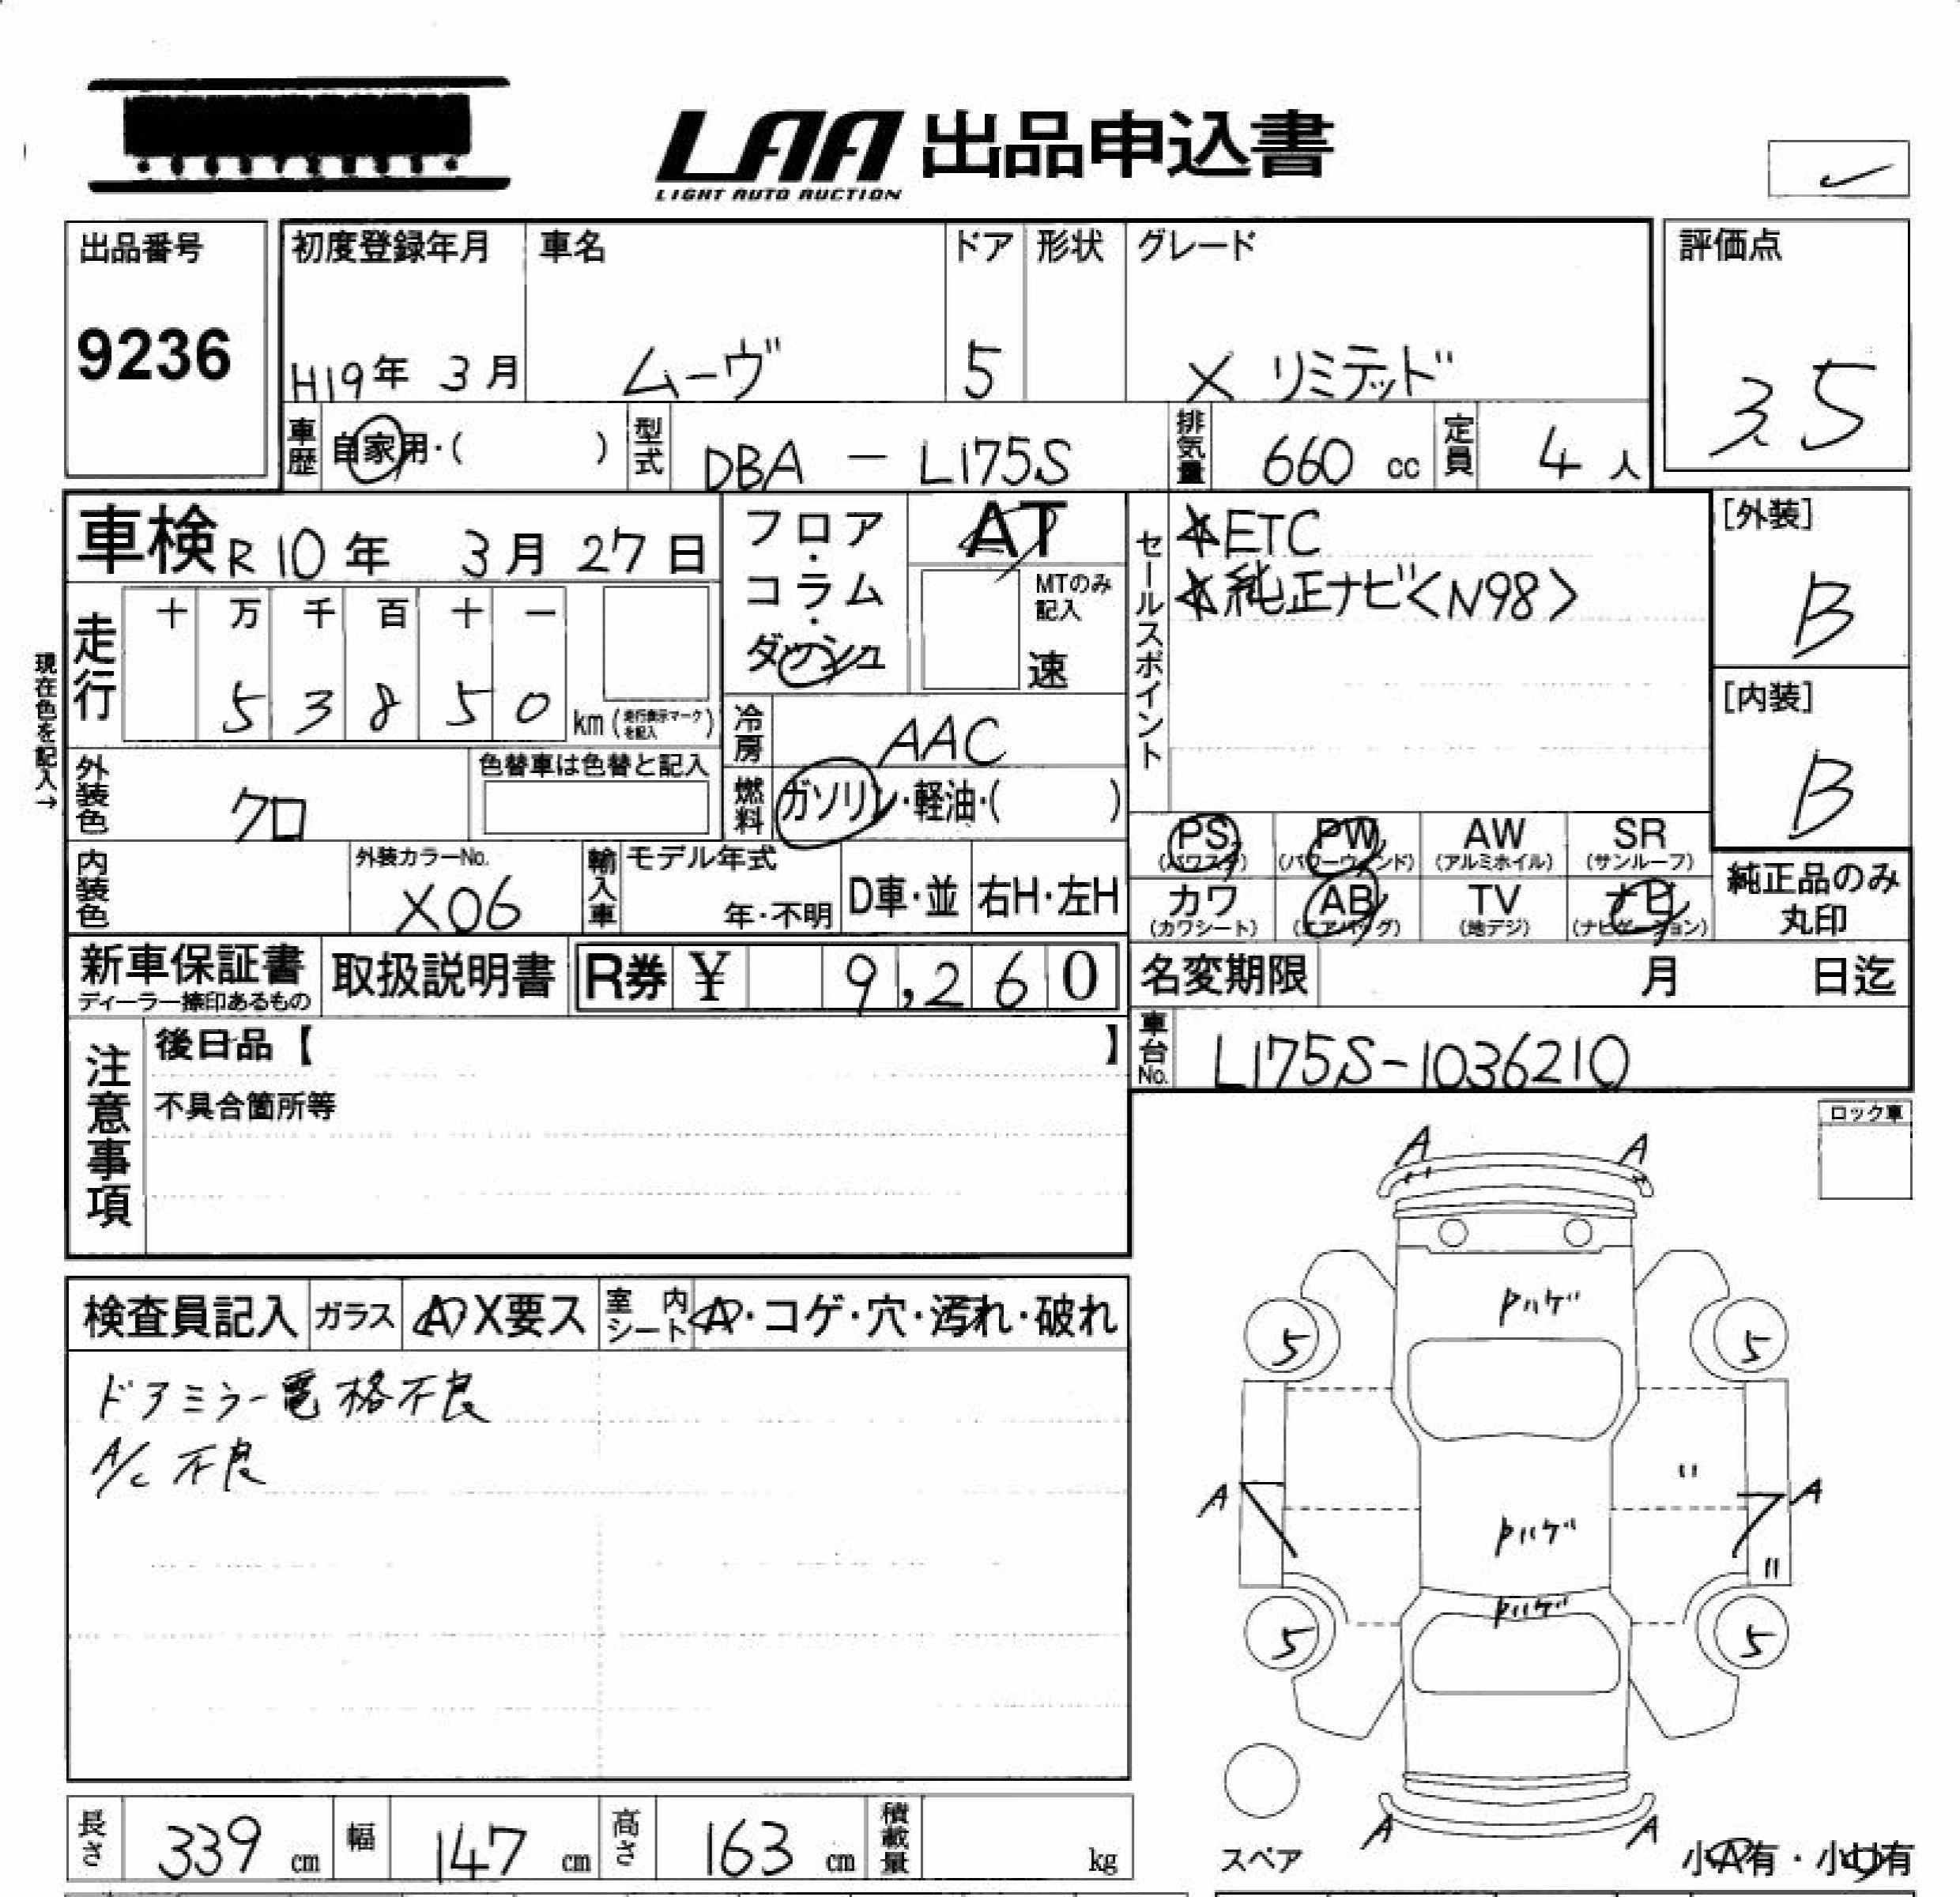 LAA 出品申込書
LIGHT AUTO AUCTION
出品番号
9236
初度登録年月
H19年 3月
車名
ムーヴ
ドア
5
形状
グレード
X リミテッド
評価点
3.5
車歴
自家用・( )
型式
DBA - L175S
排気量
660 cc
定員
4 人
車検 R10年 3月27日
フロア・コラム・ダッシュ
AT
MTのみ記入
速
セールスポイント
☆ETC
☆純正ナビ<N98>
[外装]
B
[内装]
B
現在色を記入→
走行
十 万 千 百 十 一
5 3 8 5 0
km (走行表示マークを記入)
冷房
AAC
外装色
クロ
色替車は色替と記入
燃料
ガソリン・軽油・( )
PS (パワステ)
PW (パワーウィンド)
AW (アルミホイル)
SR (サンルーフ)
カワ (カワシート)
AB (エアバッグ)
TV (地デジ)
ナビ (ナビゲーション)
純正品のみ丸印
内装色
外装カラーNo.
X06
輸入車
モデル年式
年・不明
D車・並
右H・左H
新車保証書
ディーラー捺印あるもの
取扱説明書
R券 ¥ 9,260
名変期限 月 日迄
車台No.
L175S-1036210
注意事項
後日品【 】
不具合箇所等
ロック車
検査員記入
ガラス
A X要ス
室内シート
A・コゲ・穴・汚れ・破れ
ドアミラー電格不良
A/C 不良
A
A
ハゲ
5
5
A
ハゲ
A
ハゲ
5
5
A
A
スペア
小A有・小U有
長さ
339 cm
幅
147 cm
高さ
163 cm
積載量
kg